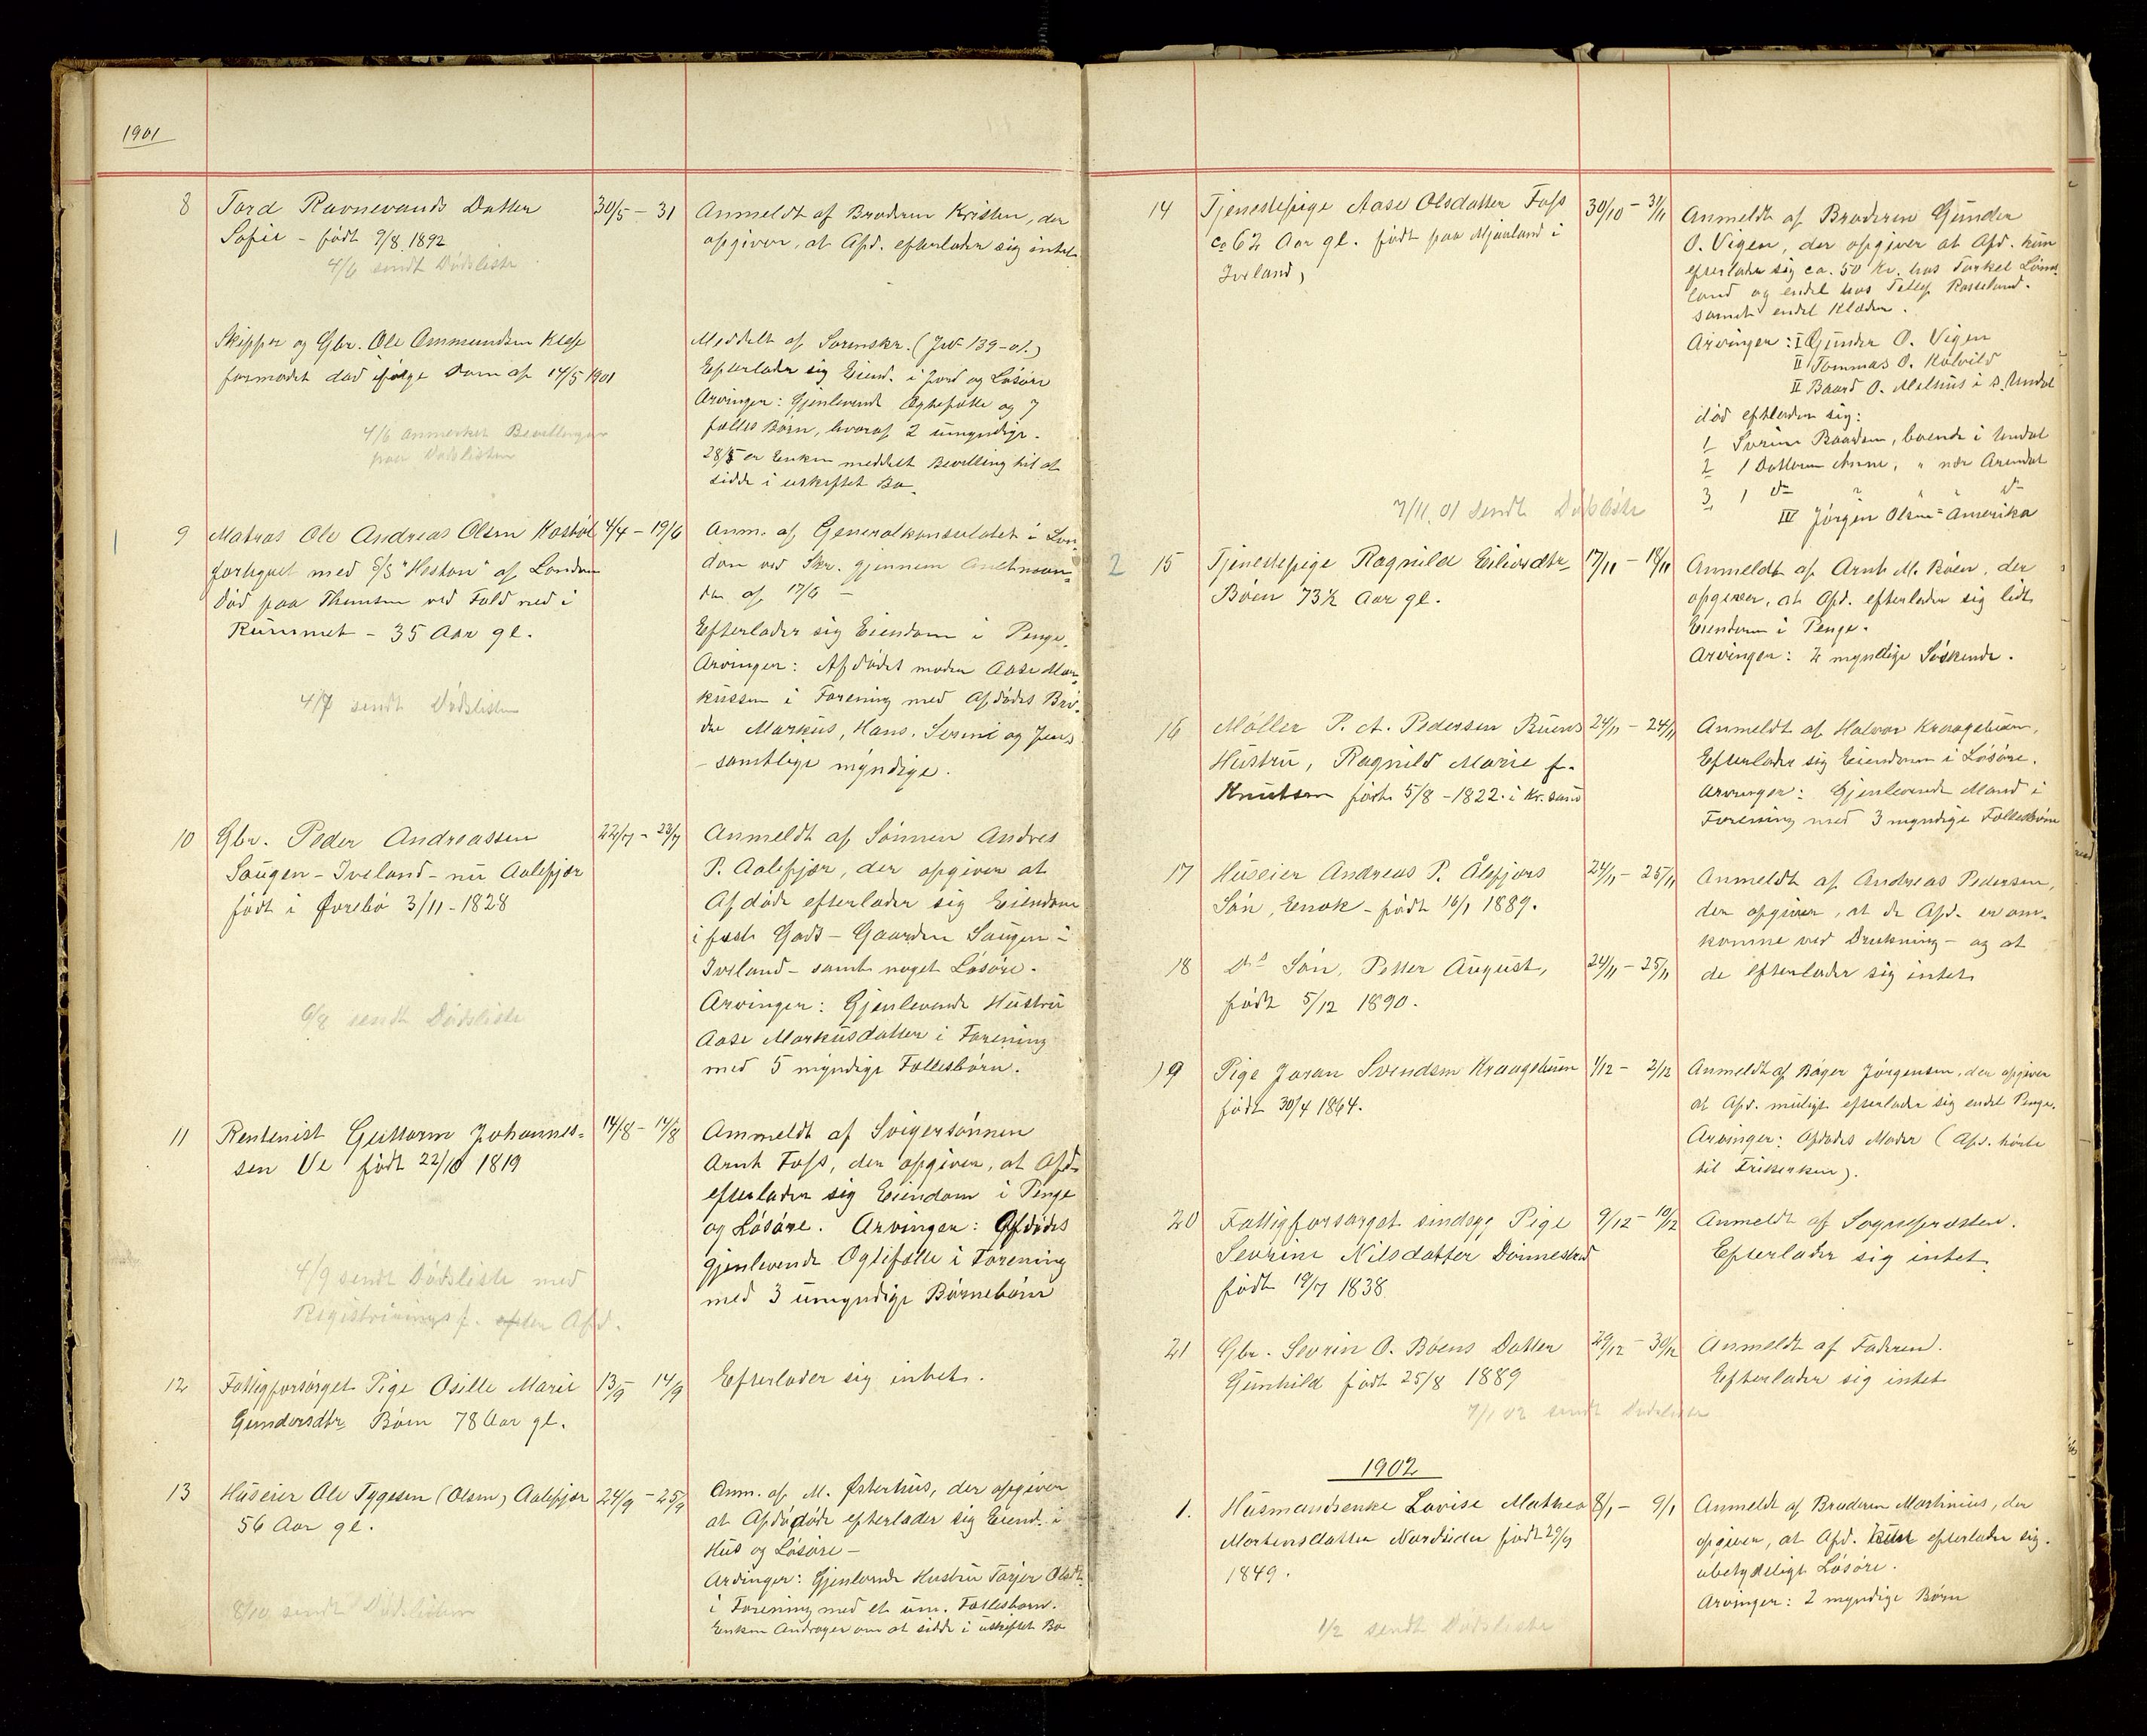 1901
8 Tard Ravnevands Datter 30/5 - 31 Anmeldt af Broderen Kristen, der
Sofie - født 9/8 1892 opgiver, at Afd. efterlader sig intet
4/6 sendt Dødsliste
Skipper og Gbr. Ole Ommundsen Klep Meddelt af Sorenskr. (Jrd 139-01.)
formodet død ifølge Dom af 14/5 1901 Efterlader sig Eiend. i Jord og Løsøre
Arvinger: Gjenlevende Ægtefælle og 7
fælles Børn, hvoraf 2 umyndige.
4/6 anmerket Bevillingen 28/5 er Enken meddelt Bevilling til at
paa Dødslisten sidde i uskiftet Bo.
1 9 Matros Ole Andreas Olsen Kostøl 4/4 - 19/6 Anm. af Generalkonsulatet i Lon-
forlignet med S/S "Heston" af London don ved Skr. gjennem Amtman-
død paa Themsen ved Fald ned i den af 17/6 -
Rummet - 35 Aar gl. Efterlader sig Eiendom i Penge.
Arvinger: Afdødes moder Aase Mar-
kussen i Forening med Afdødes Brø-
4/7 sendt Dødslisten dre Markus, Hans, Serine og Jens
- samtlige myndige.
10 Gbr. Peder Andreassen 22/7 - 23/7 Anmeldt af Sønnen Andres
Saugen - Iveland - nu Aalefjær P. Aalefjær, der opgiver at
født i Øvrebø 3/11 - 1828 Afdøde efterlader sig Eiendom
i fast Gods - Gaarden Saugen i
Iveland - samt noget Løsøre.
6/8 sendt Dødsliste Arvinger: Gjenlevende Hustru
Aase Markusdatter i Forening
med 5 myndige Fællesbørn.
11 Rentenist Guttorm Johannes- 14/8 - 14/8 Anmeldt af Svigersønnen
sen Ve født 22/10 1819 Arnt Foss, der opgiver, at Afd.
efterlader sig Eiendom i Penge
og Løsøre. Arvinger: Afdødes
gjenlevende Ægtefælle i Forening
4/9 sendt Dødsliste med med 3 umyndige Børnebørn
Registreringsf. efter Afd.
12 Fattigforsørget Pige Osille Marie 13/9 - 14/9 Efterlader sig intet.
Gundersdtr. Bøen 78 Aar gl.
13 Huseier Ole Tygesen (Olsen) Aalefjær 24/9 - 25/9 Anm. af M. Østerhus, der opgiver
56 Aar gl. at Afdødøde efterlader sig Eiend. i
Hus og Løsøre -
Arvinger: Gjenlevende Hustru Torjer Olsdt.
8/10 sendt Dødslisten i Forening med et um. Fællesbarn.
Enken Andrager om at sidde i uskiftet Bo
14 Tjenestepige Aase Olsdatter Foss 30/10 - 31/11 Anmeldt af Broderen Gunder
ca 62 Aar gl. født paa Mjaaland i O. Vigen, der opgiver at Afd. kun
Iveland, efterlader sig ca. 50 Kr. hos Torkel
land og endel hos Tellef Rosseland.
samt endel Klæder.
Arvinger: I Gunder O. Vigen
II Tommas O. Kolvild
II Baard O. Melhus i S. Undal
død efterladen sig:
1 Sørine Baardsen, boende i Undal
2 1 Datteren Anne, " nær Arendal
3 1 do " " " do
7/11 01 sendt Dødsliste IV Jørgen Olsen = Amerika
2 15 Tjenestepige Ragnild Eilivsdtr. 17/11 - 18/11 Anmeldt af Arnt M. Bøen, der
Bøen 73½ Aar gl. opgiver, at Afd. efterlader sig lidt
Eiendom i Penge.
Arvinger: 2 myndige Søskende.
16 Møller P. A. Pedersen Buens 24/11 - 24/11 Anmeldt af Halvor Kraagebuen,
Hustru, Ragnild Marie f. Efterlader sig Eiendom i Løsøre.
Knutsen født 5/8 - 1822 i Kr.sand Arvinger: Gjenlevende Mand i
Forening med 3 myndige Fællesbørn
17 Huseier Andreas P. Ålefjærs 24/11 - 25/11 Anmeldt af Andreas Pedersen,
Søn, Enok - født 16/1 1889. der opgiver, at de Afd. er om-
komne ved Drukning - og at
18 Ds Søn, Petter August, 24/11 - 25/11 de efterlader sig intet
født 5/12 1890.
19 Pige Joran Svendsen Kraagebuen 1/12 - 2/12 Anmeldt af Børger Jørgensen, der opgiver
født 30/4 1864. at Afd. muligt efterlader sig endel Penge.
Arvinger: Afdødes Moder (Afd. hørte
til Frikirken).
20 Fattigforsørget sindsyg Pige 9/12 - 10/12 Anmeldt af Sognepræsten.
Sevrine Nilsdatter Dønnestad Efterlader sig intet
født 19/7 1838
21 Gbr. Sevrin O. Bøens Datter 29/12 - 30/12 Anmeldt af Faderen.
Gunhild født 25/8 1889 Efterlader sig intet
7/1 02 sendt Dødsliste
1902
1. Husmandsenke Lovise Mathea 8/1 - 9/1 Anmeldt af Broderen Martinius, der
Mortensdatter Nordsiden født 29/9 opgiver, at Afd. kun efterlader sig
1849. ubetydeligt Løsøre.
Arvinger: 2 myndige Børn
1/2 sendt Dødsliste